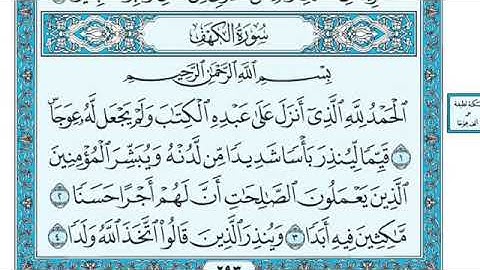 سُورَةُ الْكَهْفِ
بِسْمِ اللَّهِ الرَّحْمَٰنِ الرَّحِيمِ
الْحَمْدُ لِلَّهِ الَّذِي أَنزَلَ عَلَىٰ عَبْدِهِ الْكِتَابَ وَلَمْ يَجْعَل لَّهُ عِوَجًا ۜ
﴿١﴾ قَيِّمًا لِّيُنذِرَ بَأْسًا شَدِيدًا مِّن لَّدُنْهُ وَيُبَشِّرَ الْمُؤْمِنِينَ
الَّذِينَ يَعْمَلُونَ الصَّالِحَاتِ أَنَّ لَهُمْ أَجْرًا حَسَنًا ﴿٢﴾
مَّاكِثِينَ فِيهِ أَبَدًا ﴿٣﴾ وَيُنذِرَ الَّذِينَ قَالُوا اتَّخَذَ اللَّهُ وَلَدًا ﴿٤﴾
٢٩٣